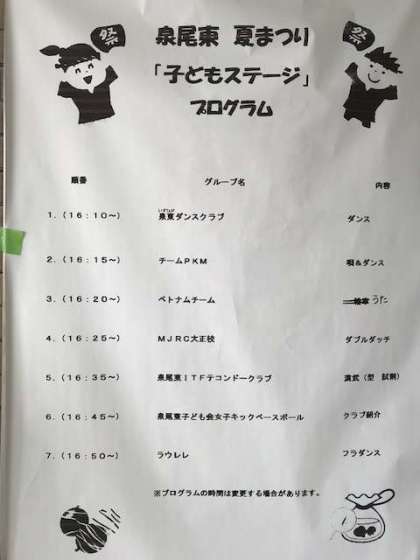 祭
祭
泉尾東 夏まつり
「子どもステージ」
プログラム
順番 グループ名 内容
いずひがし
1．（16：10～） 泉東ダンスクラブ ダンス
2．（16：15～） チームPKM 唄＆ダンス
3．（16：20～） ベトナムチーム うた
4．（16：25～） MJRC大正校 ダブルダッチ
5．（16：35～） 泉尾東ITFテコンドークラブ 演武（型 試割）
6．（16：45～） 泉尾東子ども会女子キックベースボール クラブ紹介
7．（16：50～） ラウレレ フラダンス
※プログラムの時間は変更する場合があります。